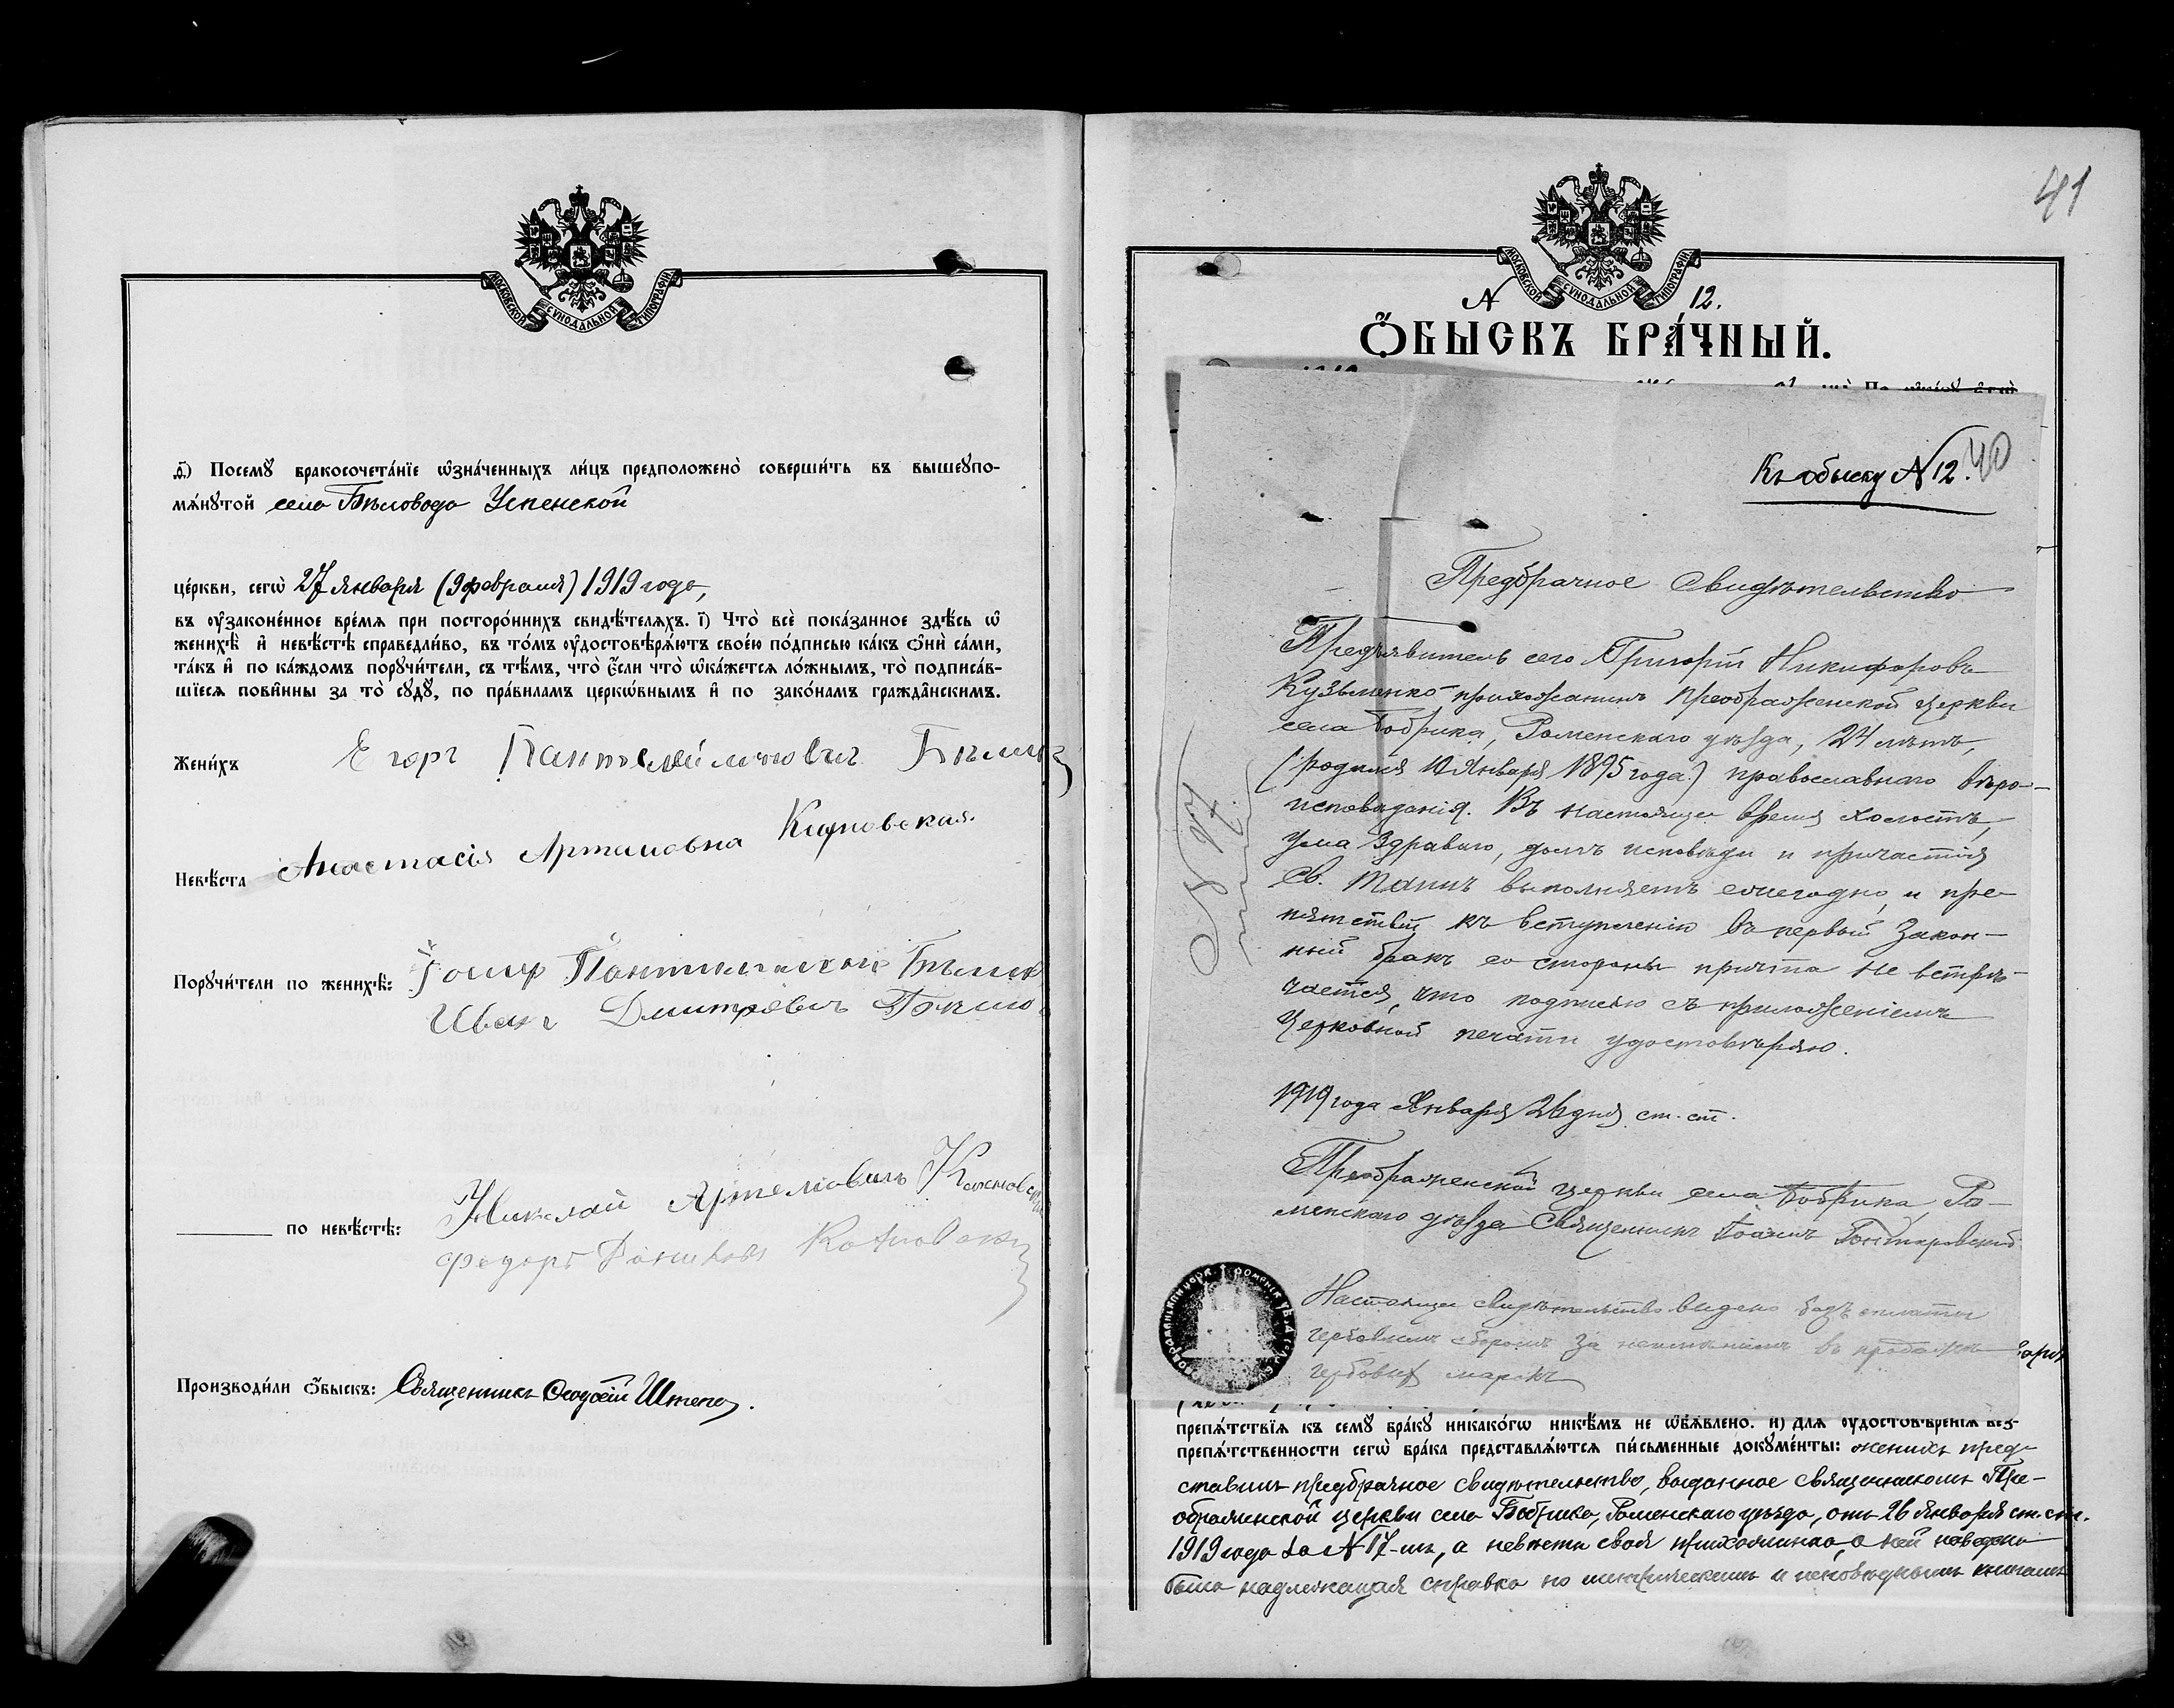 МОСКОВСКОЙ СѴНОДАЛЬНОЙ ТИПОГРАФІИ
ѳ҃) Посемꙋ̀ бракосочета́нїе ѡ҆зна́ченныхъ ли́цъ предположено̀ соверши́ть въ вышеꙋпо-
мѧ́нꙋтой села Бѣловода Успенской
це́ркви, сегѡ̀ 27 января (9 февраля) 1919 года,
въ ᲂу҆законе́нное вре́мѧ при посторо́ннихъ свидѣ́телѧхъ. і҃) Что̀ всѐ пока́занное здѣ́сь ѡ҆
женихѣ̀ и҆ невѣ́стѣ справедли́во, въ то́мъ ᲂу҆достовѣрѧ́ютъ свое́ю по́дписью ка́къ ѻ҆нѝ са́ми,
та́къ и҆ по ка́ждомъ порꙋчи́тели, съ тѣ́мъ, что̀ є҆́сли что̀ ѡ҆ка́жетсѧ ло́жнымъ, то̀ подписа́в-
шїесѧ пови́нны за то̀ сꙋдꙋ̀, по пра́виламъ церкѡ́внымъ и҆ по зако́намъ гражда̑нскимъ.
Жени́хъ Егоръ Пантелеймоновичъ
Невѣ́ста Анастасія Артемовна
Порꙋчи́тели по женихѣ̀:
Иванъ Дмитревичъ
по невѣ́стѣ: Николай Артемовичъ
Федоръ
Производи́ли ѻ҆́быскъ: Священникъ Ѳеодосій Штепа.
41
МОСКОВСКОЙ СѴНОДАЛЬНОЙ ТИПОГРАФІИ
№ 12.
Ѻ҆́БЫСКЪ БРА́ЧНЫЙ.
Къ обыску № 12. 40
Предбрачное Свидѣтельство
Предъявитель сего Григорій Никифоровъ
Кузьменко прихожанинъ Преображенской церкви
села Бобрика, Роменскаго уѣзда, 24 лѣтъ,
(родился 10 Января 1895 года) православнаго вѣро-
исповѣданія. Въ настоящее время холостъ,
ума здраваго, долгъ исповѣди и причастія
Св. Таинъ выполняетъ ежегодно, и пре-
пятствій къ вступленію въ первый закон-
ный бракъ со стороны причта не встрѣ-
чается, что подписью съ приложеніемъ
церковной печати удостовѣряю.
1919 года Января 26 дня ст. ст.
Преображенской церкви села Бобрика, Ро-
менскаго уѣзда Священникъ Іоаннъ
Настоящее свидѣтельство видано безъ оплаты
гербовымъ сборомъ за неимѣніемъ въ продажѣ
гербовых марокъ
№ 17
препѧ́тствїѧ къ семꙋ̀ бра́кꙋ никако́гѡ никѣ́мъ не ѡ҆б̾ѧ́влено. и҃) Для ᲂу҆достовѣре́нїѧ без-
препѧ́тственности сегѡ̀ бра́ка представлѧ́ютсѧ пи́сьменные докꙋме́нты: женихъ пред-
ставилъ предбрачное свидѣтельство, выданное священникомъ Пре-
ображенской церкви села Бобрика, Роменскаго уѣзда, отъ 26 января ст. ст.
1919 года за № 17-мъ, а невѣста своя прихожанка, о ней наведена
была надлежащая справка по метрическимъ и исповѣднымъ книгамъ